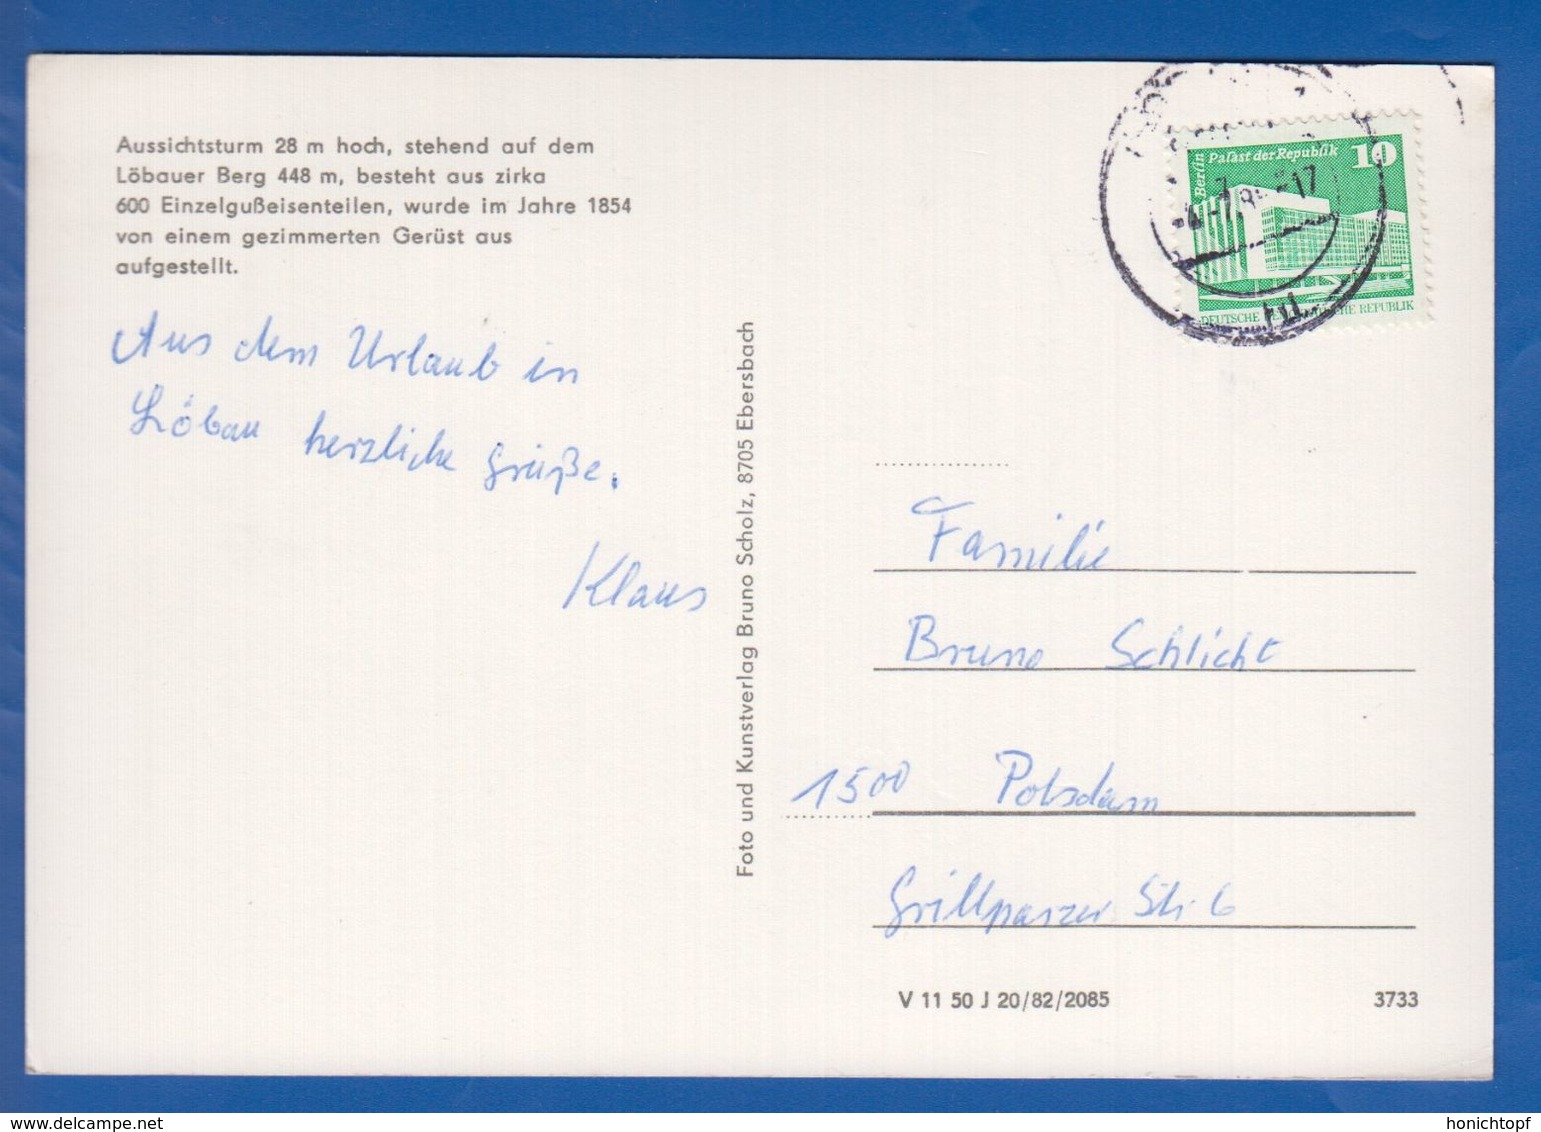 Aussichtsturm 28 m hoch, stehend auf dem
Löbauer Berg 448 m, besteht aus zirka
600 Einzelgußeisenteilen, wurde im Jahre 1854
von einem gezimmerten Gerüst aus
aufgestellt.
Aus dem Urlaub in
Löbau herzliche Grüße.
Klaus
Foto und Kunstverlag Bruno Scholz, 8705 Ebersbach
Berlin
Palast der Republik
10
DEUTSCHE REPUBLIK
Familie
Bruno Schlicht
1500 Potsdam
Grillparzer Str. 6
V 11 50 J 20/82/2085
3733
delcampe.net
honichtopf